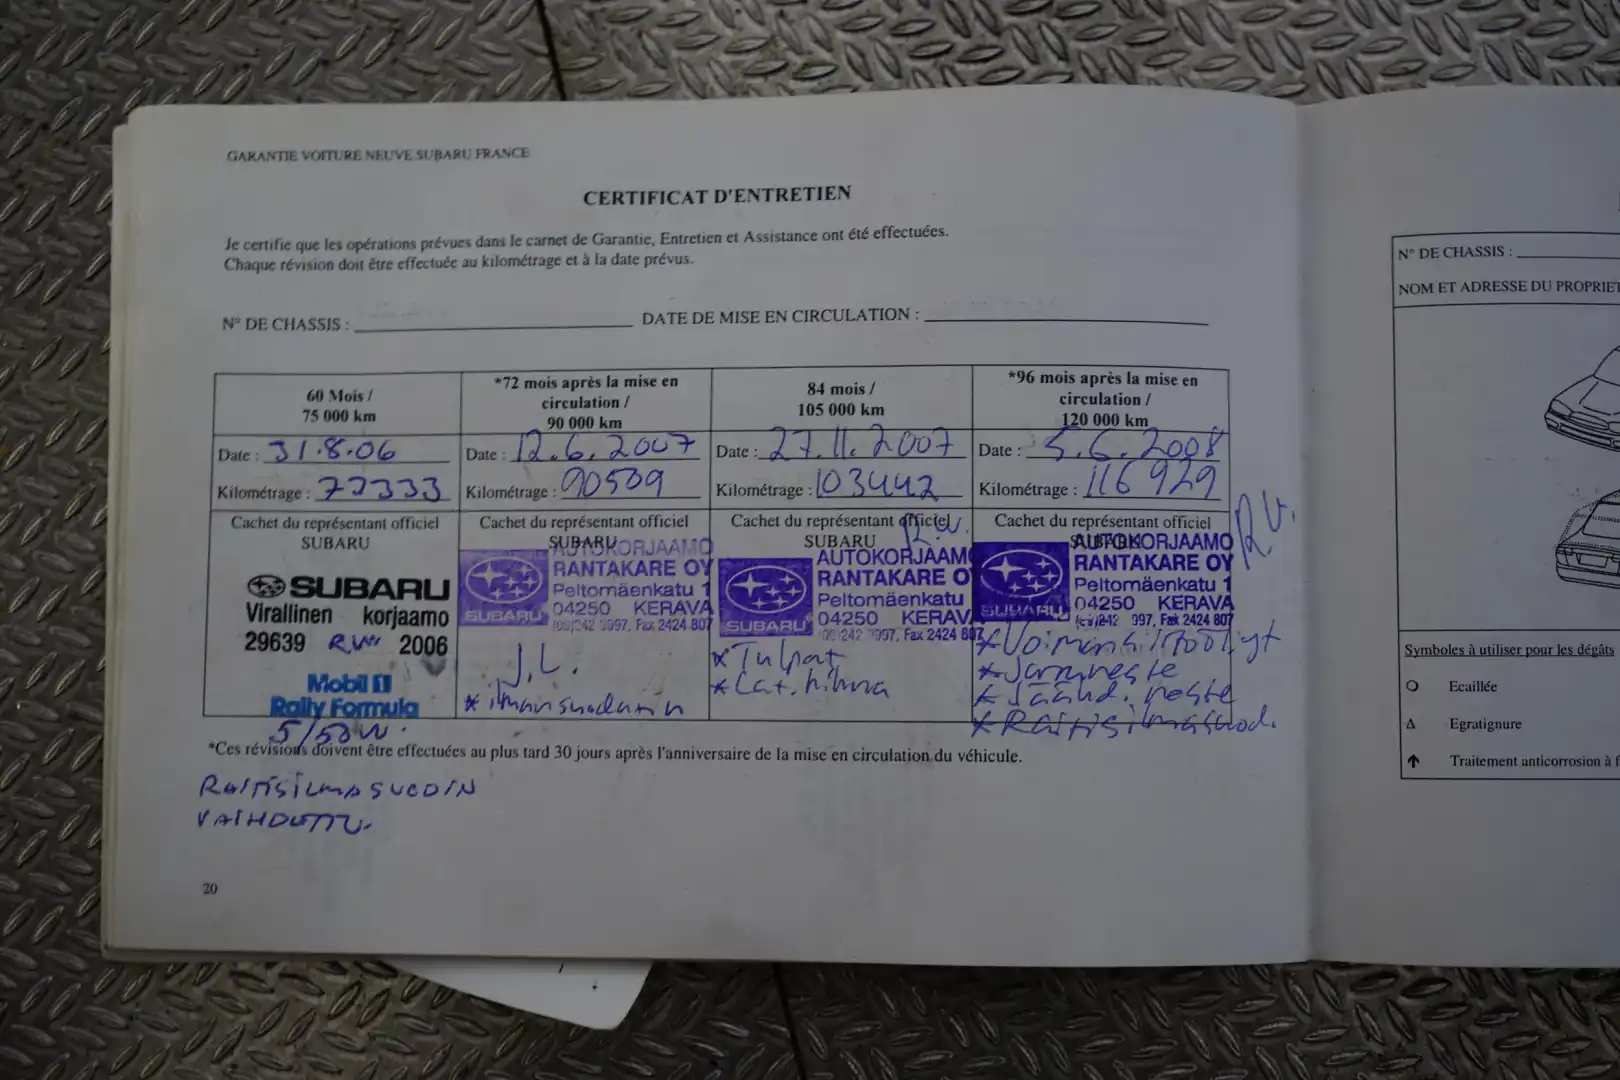 GARANTIE VOITURE NEUVE SUBARU FRANCE
CERTIFICAT D'ENTRETIEN
Je certifie que les opérations prévues dans le carnet de Garantie, Entretien et Assistance ont été effectuées.
Chaque révision doit être effectuée au kilométrage et à la date prévus.
N° DE CHASSIS : DATE DE MISE EN CIRCULATION :
60 Mois /
75 000 km
Date : 31.8.06
Kilométrage : 73333
Cachet du représentant officiel
SUBARU
SUBARU
Virallinen korjaamo
29639 R.W 2006
Mobil 1
Rally Formula
5/50W.
*72 mois après la mise en
circulation /
90 000 km
Date : 12.6.2007
Kilométrage : 90509
Cachet du représentant officiel
SUBARU
AUTOKORJAAMO
RANTAKARE OY
Peltomäenkatu 1
04250 KERAVA
SUBARU
Fax 2424 807
J.L.
* ilmansuodatin
84 mois /
105 000 km
Date : 27.11.2007
Kilométrage : 103442
Cachet du représentant officiel
SUBARU R.W.
AUTOKORJAAMO
RANTAKARE O
Peltomäenkatu
04250 KERAVA
SUBARU
Fax 2424 807
* Tulpat
* Lat. hihna
*96 mois après la mise en
circulation /
120 000 km
Date : 5.6.2008
Kilométrage : 116929
Cachet du représentant officiel
SUBARU
R.W.
AUTOKORJAAMO
RANTAKARE OY
Peltomäenkatu 1
04250 KERAVA
SUBARU
997, Fax 2424 807
* Voimansiirtoöljyt
* Jarruneste
* Jäähd. neste
* Raitisilmasuod.
*Ces révisions doivent être effectuées au plus tard 30 jours après l'anniversaire de la mise en circulation du véhicule.
RAITISILMASUODIN
VAIHDETTU.
20
N° DE CHASSIS :
NOM ET ADRESSE DU PROPRIET
Symboles à utiliser pour les dégâts
Ecaillée
Egratignure
Traitement anticorrosion à f